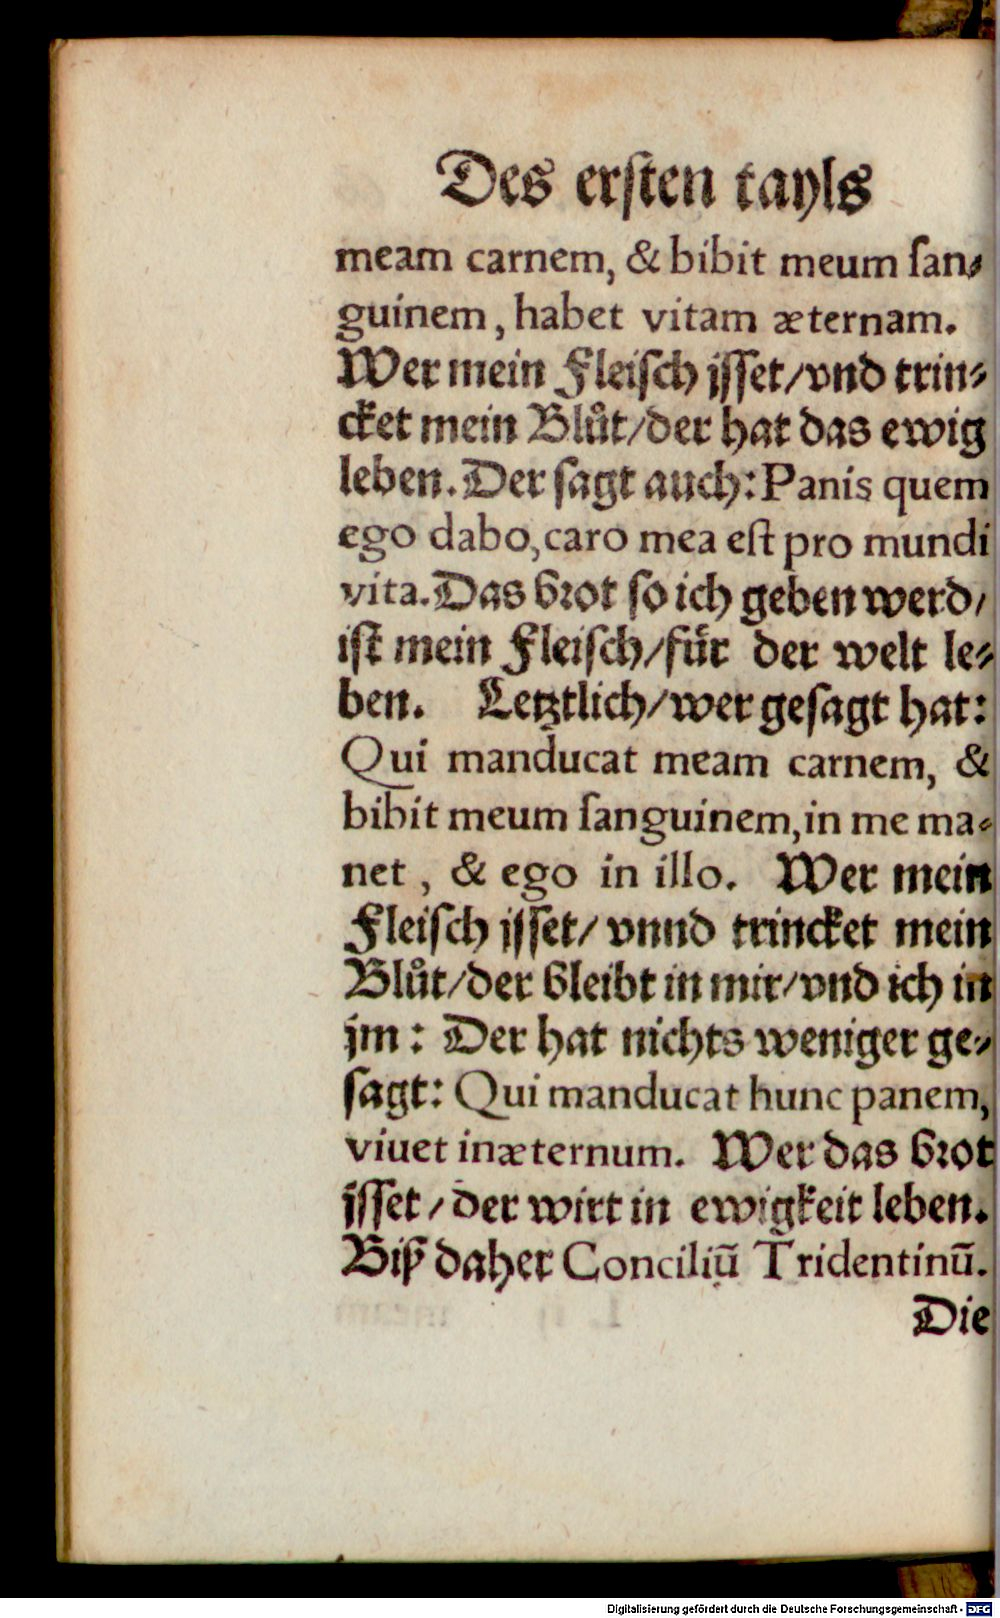 Des ersten tayls
meam carnem, & bibit meum ſan⸗
guinem, habet vitam æternam.
Wer mein Fleiſch jſſet/vnd trin⸗
cket mein Blůt/der hat das ewig
leben. Der ſagt auch: Panis quem
ego dabo, caro mea eſt pro mundi
vita. Das brot ſo ich geben werd/
iſt mein Fleiſch/für der welt le⸗
ben. Letztlich/wer geſagt hat:
Qui manducat meam carnem, &
bibit meum ſanguinem, in me ma⸗
net, & ego in illo. Wer mein
Fleiſch jſſet/ vnnd trincket mein
Blůt/der bleibt in mir/vnd ich in
jm: Der hat nichts weniger ge⸗
ſagt: Qui manducat hunc panem,
viuet inæternum. Wer das brot
jſſet/der wirt in ewigkeit leben.
Biß daher Conciliū Tridentinū.
Die
Digitalisierung gefördert durch die Deutsche Forschungsgemeinschaft - DFG